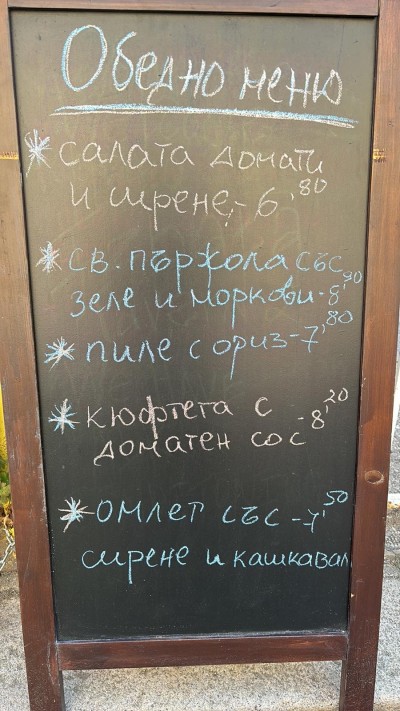 Обедно меню
* салата домати
и сирене,- 6,80
* св. пържола със
зеле и моркови - 8,90
* пиле с ориз - 7,80
* кюфтета с
доматен сос - 8,20
* омлет със - 7,50
сирене и кашкавал